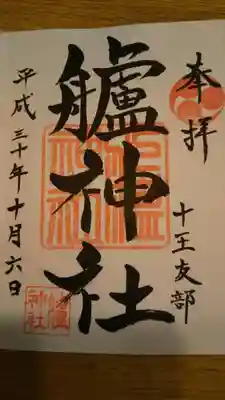 奉拝
十王友部
艫神社
平成三十年十月六日